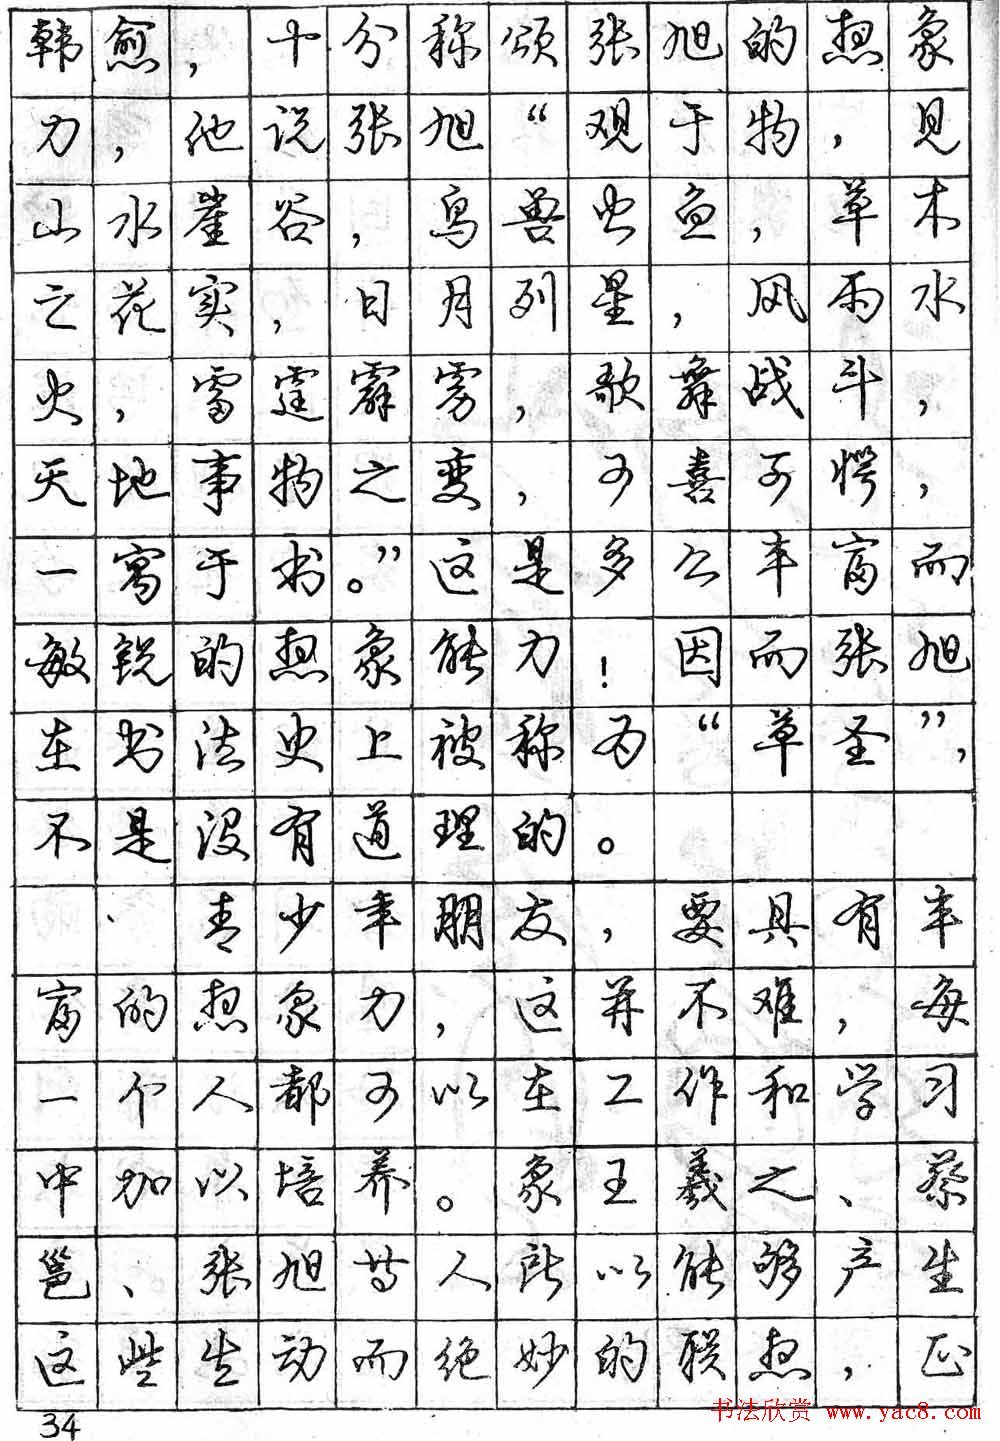 韩愈，十分称颂张旭的想象
力，他说张旭“观于物，见
山水崖谷，鸟兽虫鱼，草木
之花实，日月列星，风雨水
火，雷霆霹雳，歌舞战斗，
天地事物之变，可喜可愕，
一寓于书。”这是多么丰富而
敏锐的想象能力！因而张旭
在书法史上被称为“草圣”，
不是没有道理的。
青少年朋友，要具有丰
富的想象力，这并不难，每
一个人都可以在工作和学习
中加以培养。象王羲之、蔡
邕、张旭等人所以能够产生
这些生动而绝妙的联想，正
34
书法欣赏 www.yac8.com